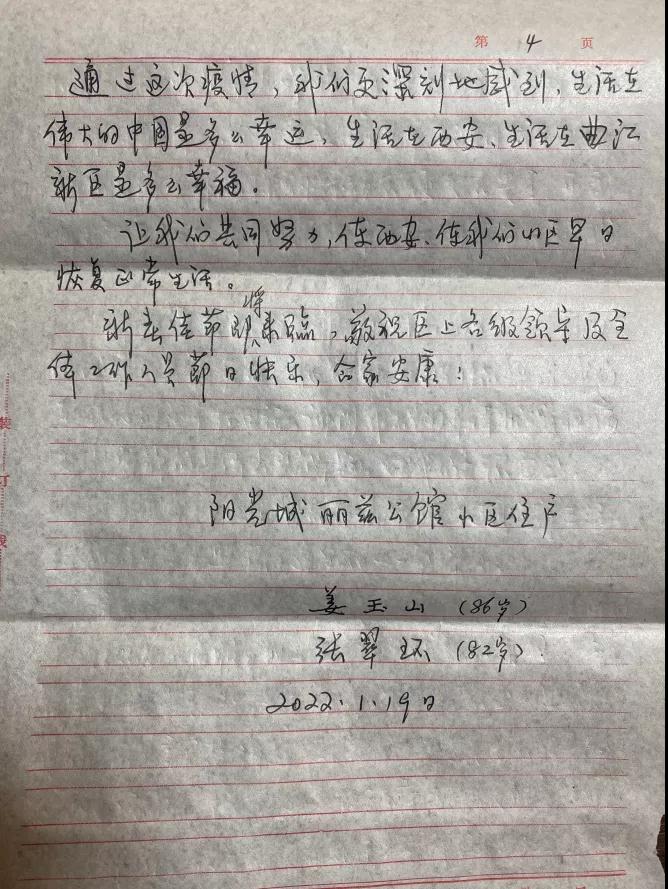 第 4 页
通过这次疫情，我们更深刻地感到，生活在
伟大的中国是多么幸运，生活在西安、生活在曲江
新区是多么幸福。
让我们共同努力，使西安、使我们小区早日
恢复正常生活。
新春佳节即将来临，敬祝区上各级领导及全
体工作人员节日快乐，合家安康！
阳光城丽兹公馆小区住户
姜玉山（86岁）
张翠环（82岁）
2022.1.19日
装
订
线